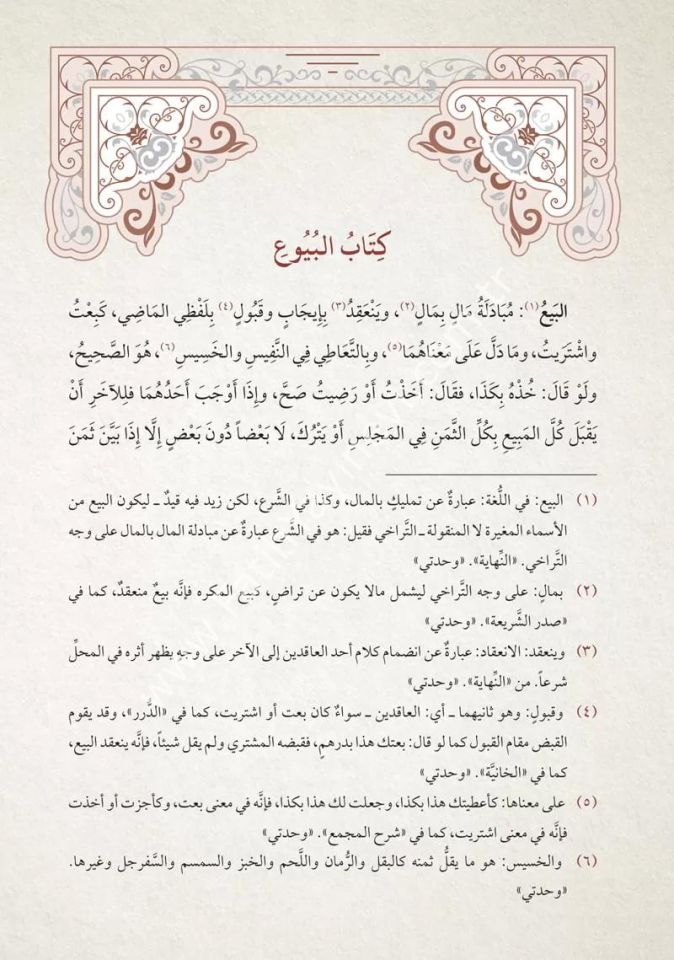 كِتَابُ البُيُوعِ
البَيْعُ(١): مُبَادَلَةُ مَالٍ بِمَالٍ(٢)، ويَنْعَقِدُ(٣) بِإِيجَابٍ وقَبُولٍ(٤) بِلَفْظِي المَاضِي، كَبِعْتُ
واشْتَرَيتُ، ومَا دَلَّ عَلَى مَعْنَاهُمَا(٥)، وبِالتَّعَاطِي فِي النَّفِيسِ والخَسِيسِ(٦)، هُوَ الصَّحِيحُ،
ولَوْ قَالَ: خُذْهُ بِكَذَا، فقَالَ: أَخَذْتُ أَوْ رَضِيتُ صَحَّ، وإِذَا أَوْجَبَ أَحَدُهُمَا فلِلآخَرِ أَنْ
يَقْبَلَ كُلَّ المَبِيعِ بِكُلِّ الثَّمَنِ فِي المَجْلِسِ أَوْ يَتْرُكَ، لَا بَعْضاً دُونَ بَعْضٍ إِلَّا إِذَا بَيَّنَ ثَمَنَ
(١) البيع: في اللُّغة: عبارةٌ عن تمليكٍ بالمال، وكذا في الشَّرع، لكن زيد فيه قيدٌ ــ ليكون البيع من
الأسماء المغيرة لا المنقولة ــ التَّراخي فقيل: هو في الشَّرع عبارةٌ عن مبادلة المال بالمال على وجه
التَّراخي. «النِّهاية». «وحدتي»
(٢) بمالٍ: على وجه التَّراخي ليشمل مالا يكون عن تراضٍ، كبيع المكره فإنَّه بيعٌ منعقدٌ، كما في
«صدر الشَّريعة». «وحدتي»
(٣) وينعقد: الانعقاد: عبارةٌ عن انضمام كلام أحد العاقدين إلى الآخر على وجهٍ يظهر أثره في المحلِّ
شرعاً. من «النِّهاية». «وحدتي»
(٤) وقبولٍ: وهو ثانيهما ــ أي: العاقدين ــ سواءٌ كان بعت أو اشتريت، كما في «الدُّرر»، وقد يقوم
القبض مقام القبول كما لو قال: بعتك هذا بدرهمٍ، فقبضه المشتري ولم يقل شيئاً، فإنَّه ينعقد البيع،
كما في «الخانيَّة». «وحدتي»
(٥) على معناها: كأعطيتك هذا بكذا، وجعلت لك هذا بكذا، فإنَّه في معنى بعت، وكأجزت أو أخذت
فإنَّه في معنى اشتريت، كما في «شرح المجمع». «وحدتي»
(٦) والخسيس: هو ما يقلُّ ثمنه كالبقل والرُّمان واللَّحم والخبز والسمسم والسَّفرجل وغيرها.
«وحدتي»